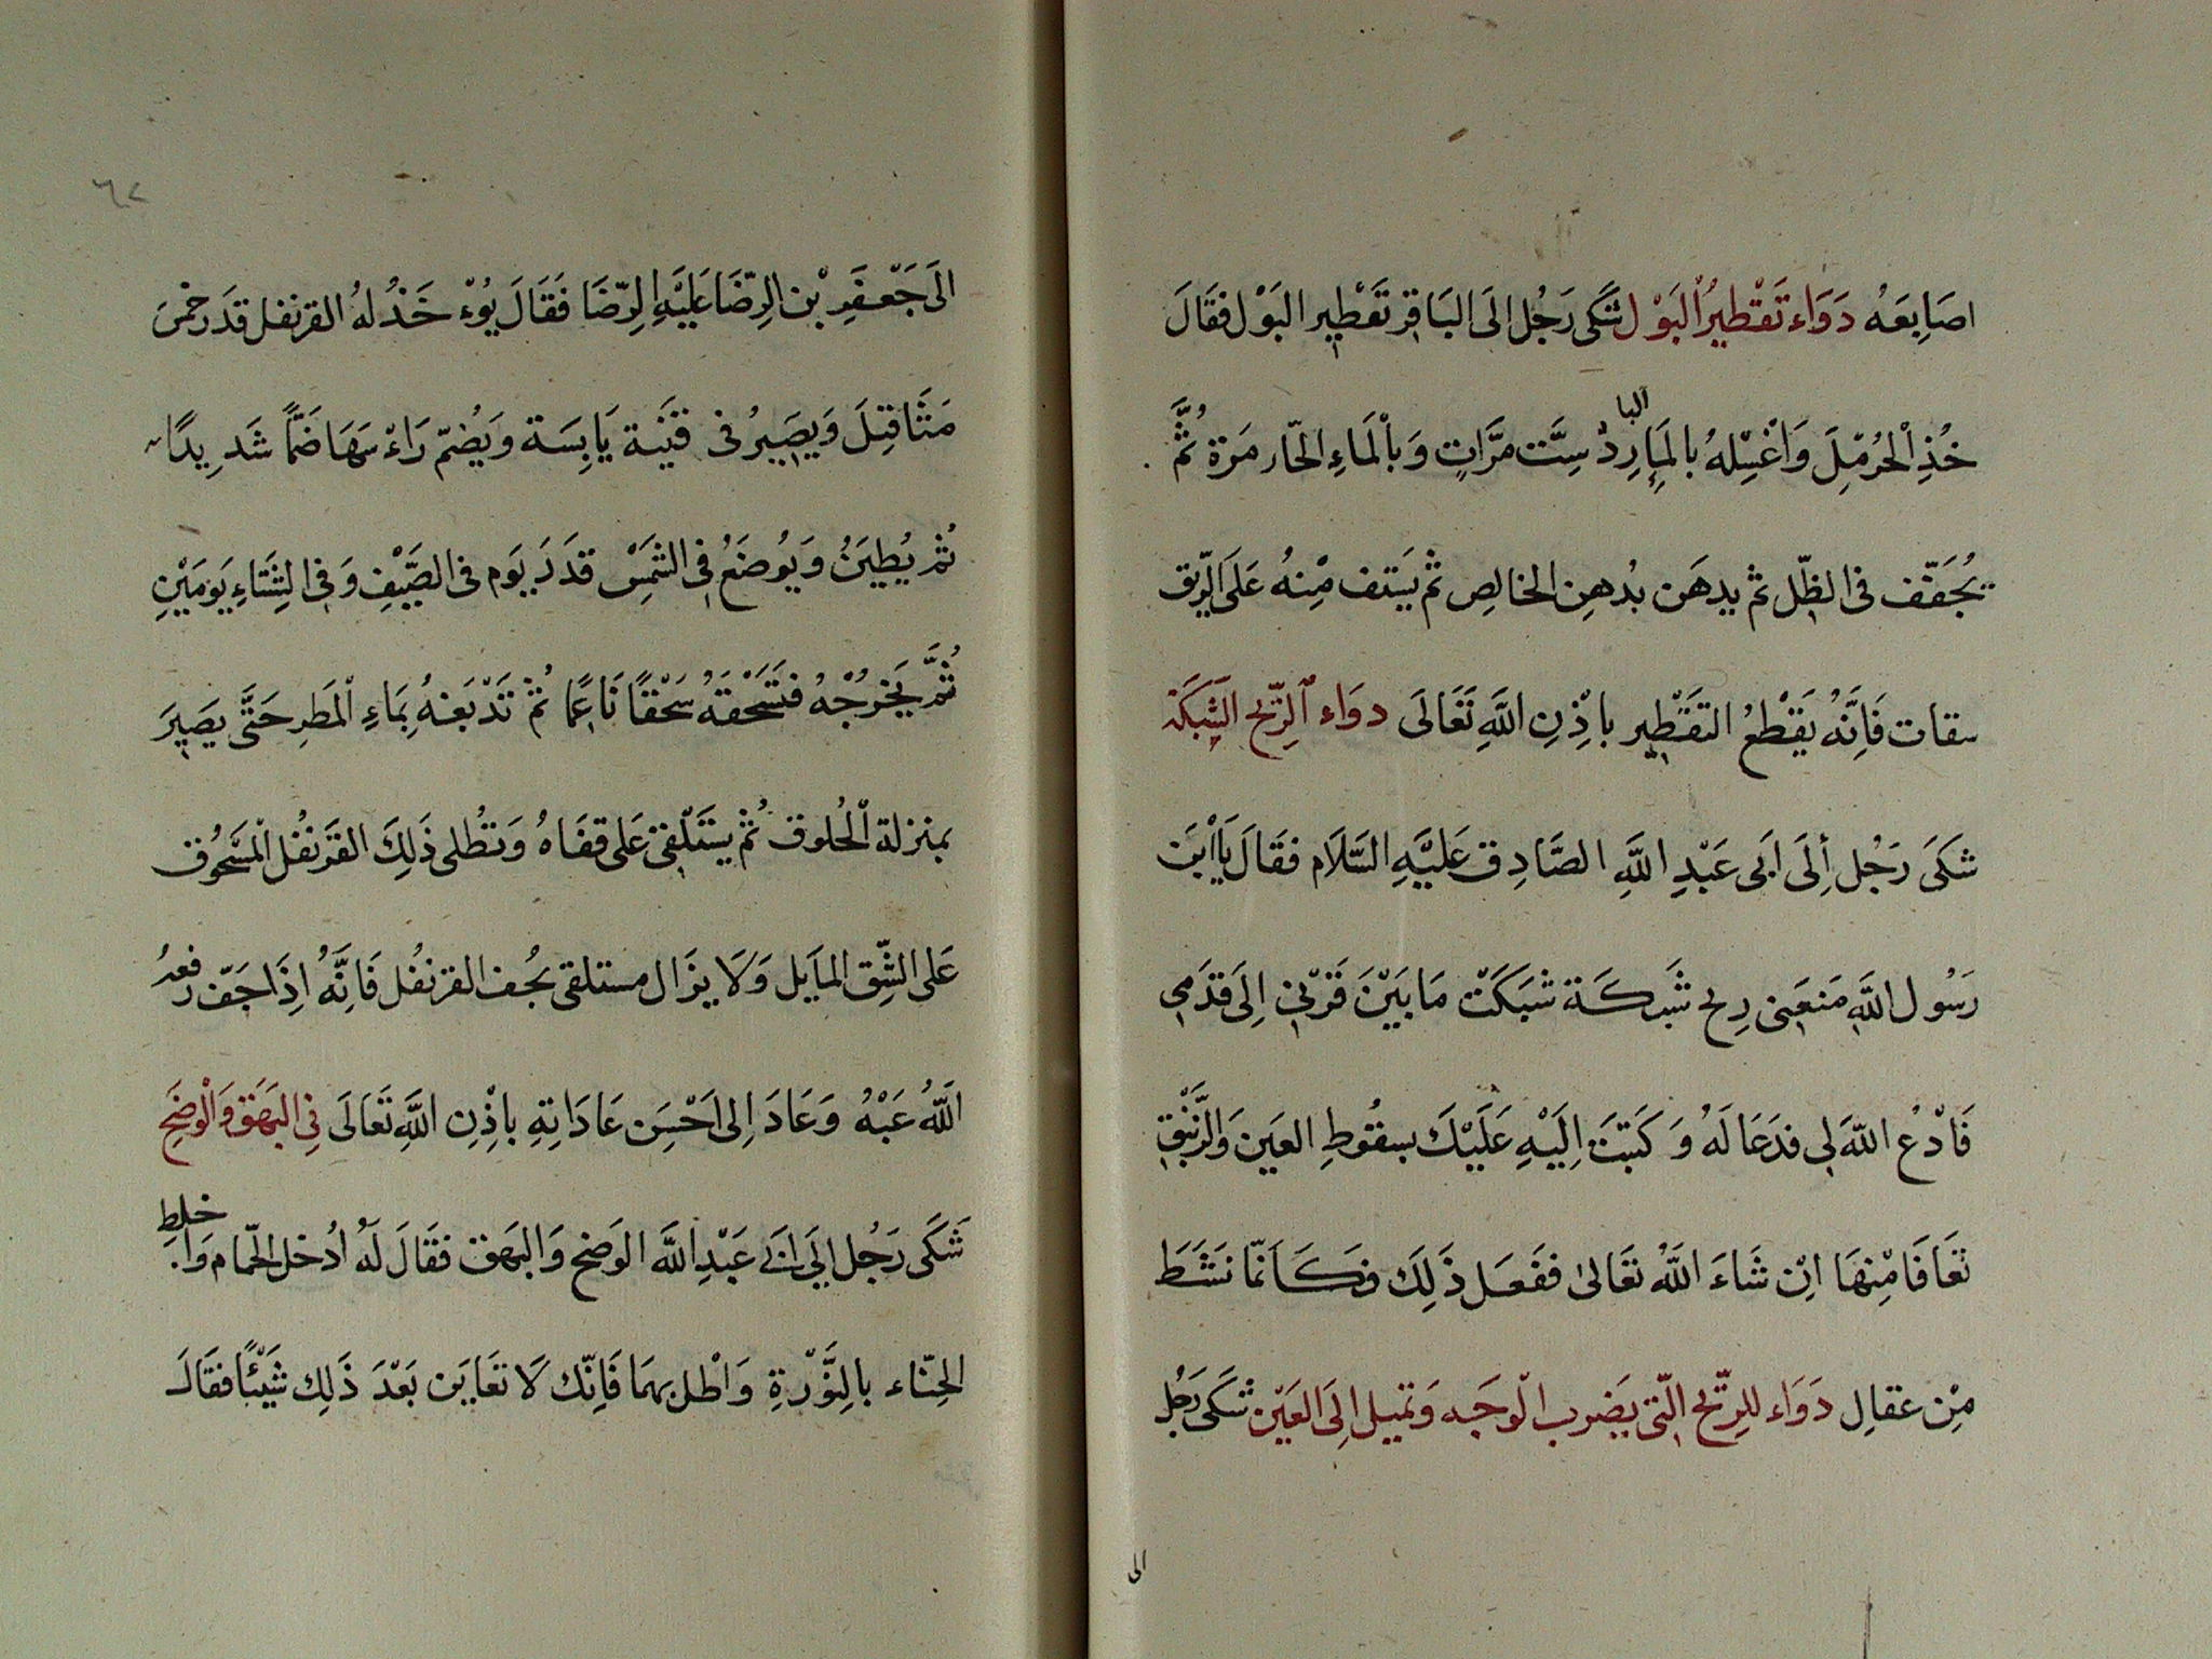 اصَابِعَهُ دَوَاء تَقْطِيرُ الْبَوْل شَكَى رَجُل الَى البَاقِرِ تَقْطِير البَوْل فَقَالَ
خُذِ الْحُرْمْلَ وَاغْسِلْهُ بالمَاءِ البارِدْ سِتَّ مرَّاتٍ وَبالْمَاءِ الحَّار مَرَة ثُمَّ
يُجَفَّف فى الظِّل ثم يدهَن بُدهِن الخالِصِ ثم يَستف مِْنهُ عَلَى الرِّيق
سقات فَاِنَّهُ يَقْطَعُ التَقْطِير باذِْنِ اللَّهِ تَعَالَى دوَاء الرِّيح الشَبَكَة
شكَى رَجُل أِلَى ابَى عَبْدِ اللَّهِ الصَّادِق عَليَهِ السَّلَام فقَالَ يَا ابْنَ
رَسُول اللَّهِ مَنعَنِى رِيح شَبكَة شَبَكَتْ مَا بَيْنَ قَرْنِى اِلَى قدَمِى
فَادْعُ اللَّهَ لِى فدَعَا لَهُ وَ كَتبَتَ اِلَيْهِ عَلَيْكَ بسقُوطِ العَيَن وَالزَّنْبَقِ
تَعَافَا مِْنهَا اِنْ شَاءَ اللَّهُ تعَالىٰ ففَعَل ذَلِكَ فكَأنمَّا نَشَطَ
مِْن عقالِ دَوَاء للِرِّيح الّتى يَضرب الْوجَه وَتميل اِلَى العَيْن شَكَى رَجُل
الى
٦٢
الَى جَعْفَرِ بْن الرِّضَا عَليَهِ الرِّضَا فَقَالَ يُوْء خَذْ لهُ القرنفل قَدَر خمْسَ
مَثَاقِيَلَ وَيصَيرُ فى قنَيَة يَابِسَة وَيضُمّ رَاءْسَهَا ضَمًّا شَدِيدًا
ثُم يُطيَنُ وَيُوضَعُ فِى الشَمَْسْ قدَرَ يَوم فى الصَّيْفِ وَفِى الشِتَاءِ يَومَيْنِ
ثُمَّ يَخرجُهُ فتَسَحْقهُ سَحْقًا نَاعِمًا ثُمْ تَدْبَغهُ بِمَاءِ الْمَطَرِ حَتَّى يصَيِرَ
بمنزلة الْحُلوق ثُم يستَلْقىِ عَلى قفَاهُ وَتطُلى ذَلِكَ القَرَنفُل المْسَحُوق
عَلى الشِّق المايَل وَلَا يزَال مستلقى يجُف القرنفُل فَاِنَّهُ اِذَا جَفّ رفعهُ
اللَّهُ عَنْهُ وَعَادَ اِلى اَحْسَِن عَادَاتِهِ باذِْنِ اللَّهِ تَعَالَى فِى البَهَق وَالْوَضَحِ
شَكَى رَجُل اِلَى ابَى عَبْدِ اللَّهِ الوَضح وَالبهَق فقَالَ لَهُ ادُخل الحّمام وَاخلِط
الحِنّاء بالِنَّوْرةِ وَاْطل بهمَا فَاِنّك لَا تعَايَن بَعْدَ ذَلِك شَيْئًا فقَالَ